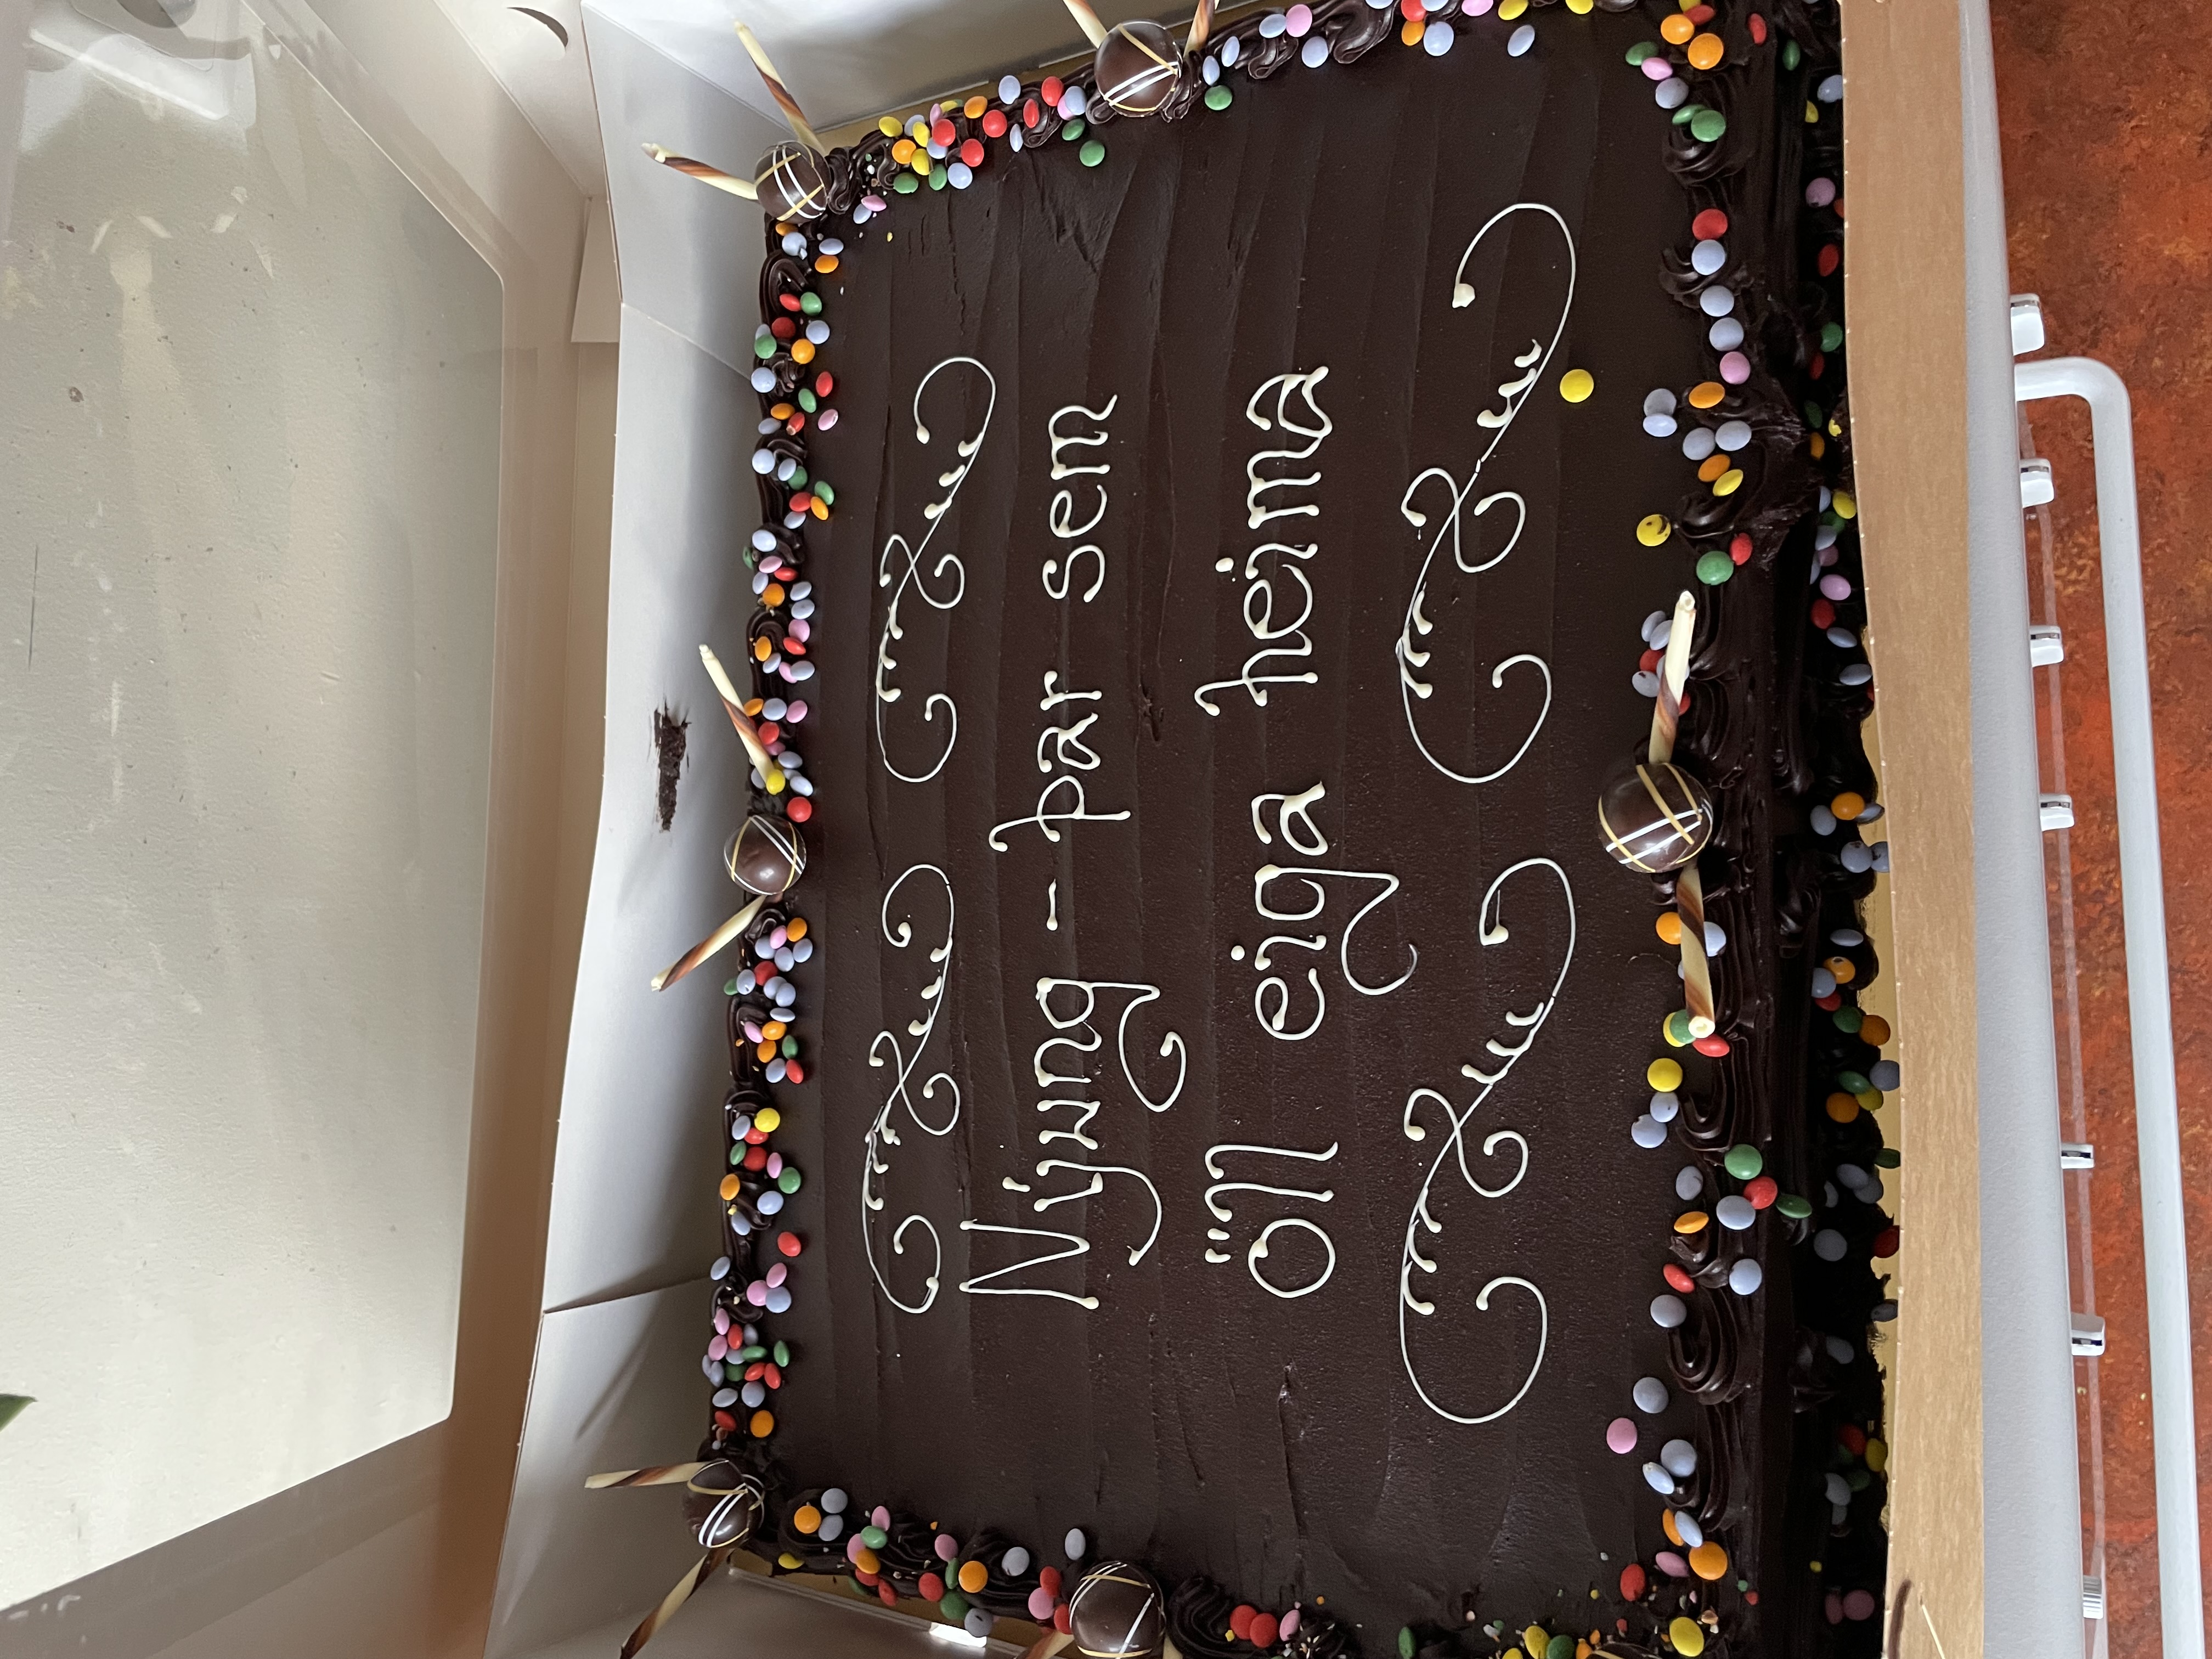 Nýung - þar sem
öll eiga heima